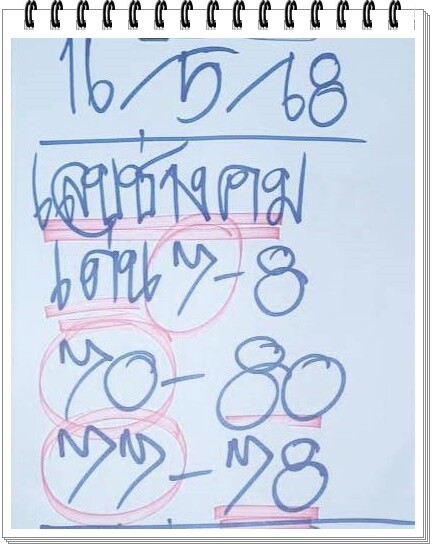 16/5/68
เลขช่างคม
เด่น 7-8
70-80
77-78